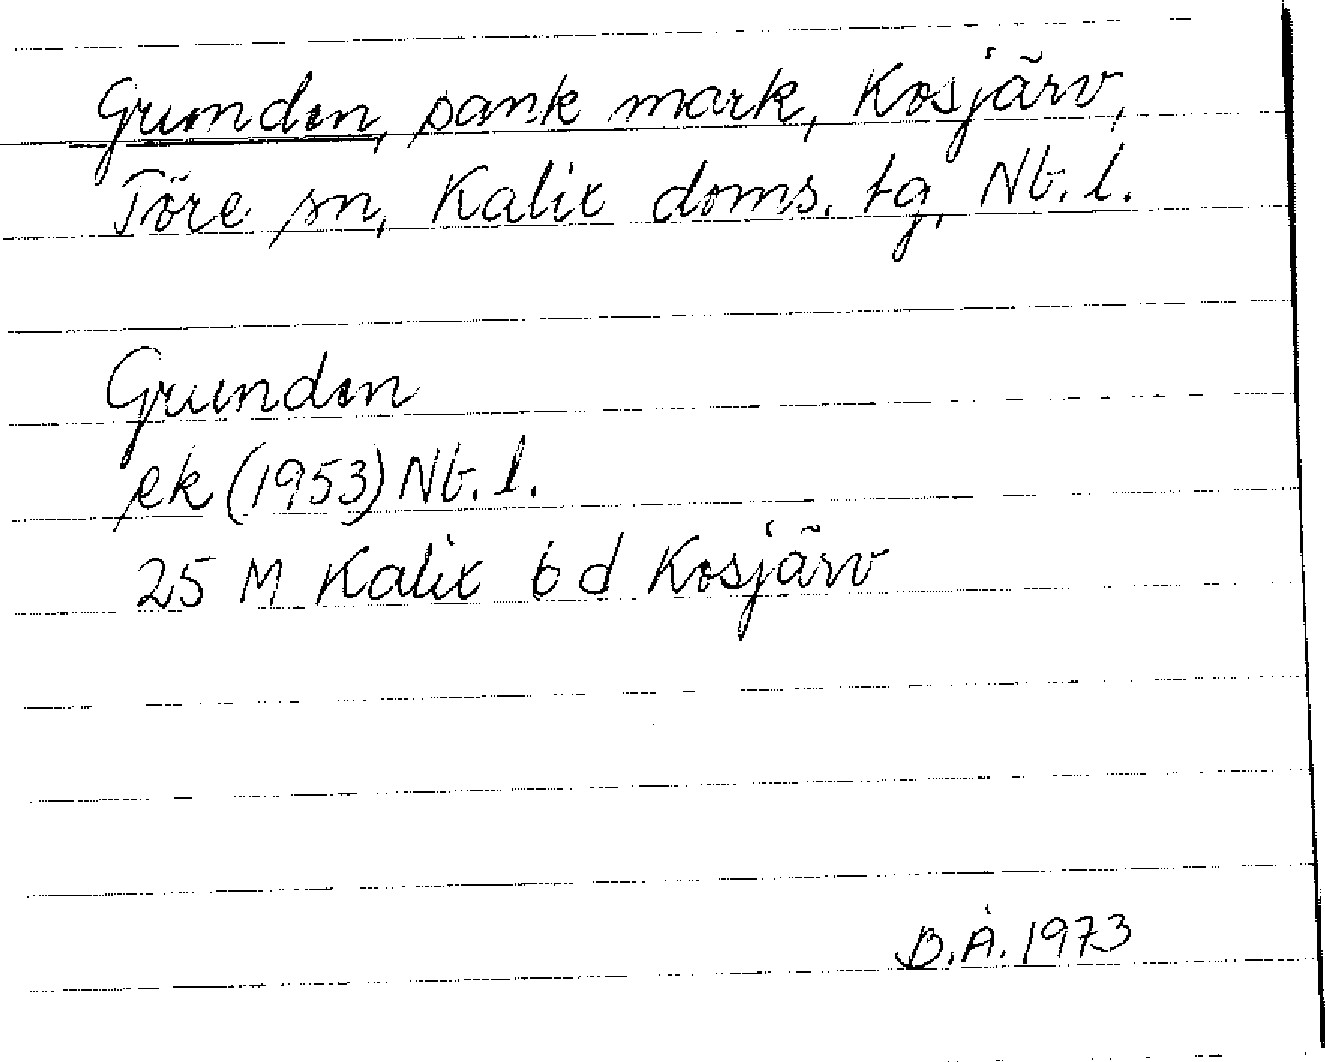 Grunden, sank mark, Kosjärv,
Töre sn, Kalix doms. tg, Nb. l.
Grunden
ek (1953) Nb. l.
25 M Kalix 6 d Kosjärv
B.Å. 1973